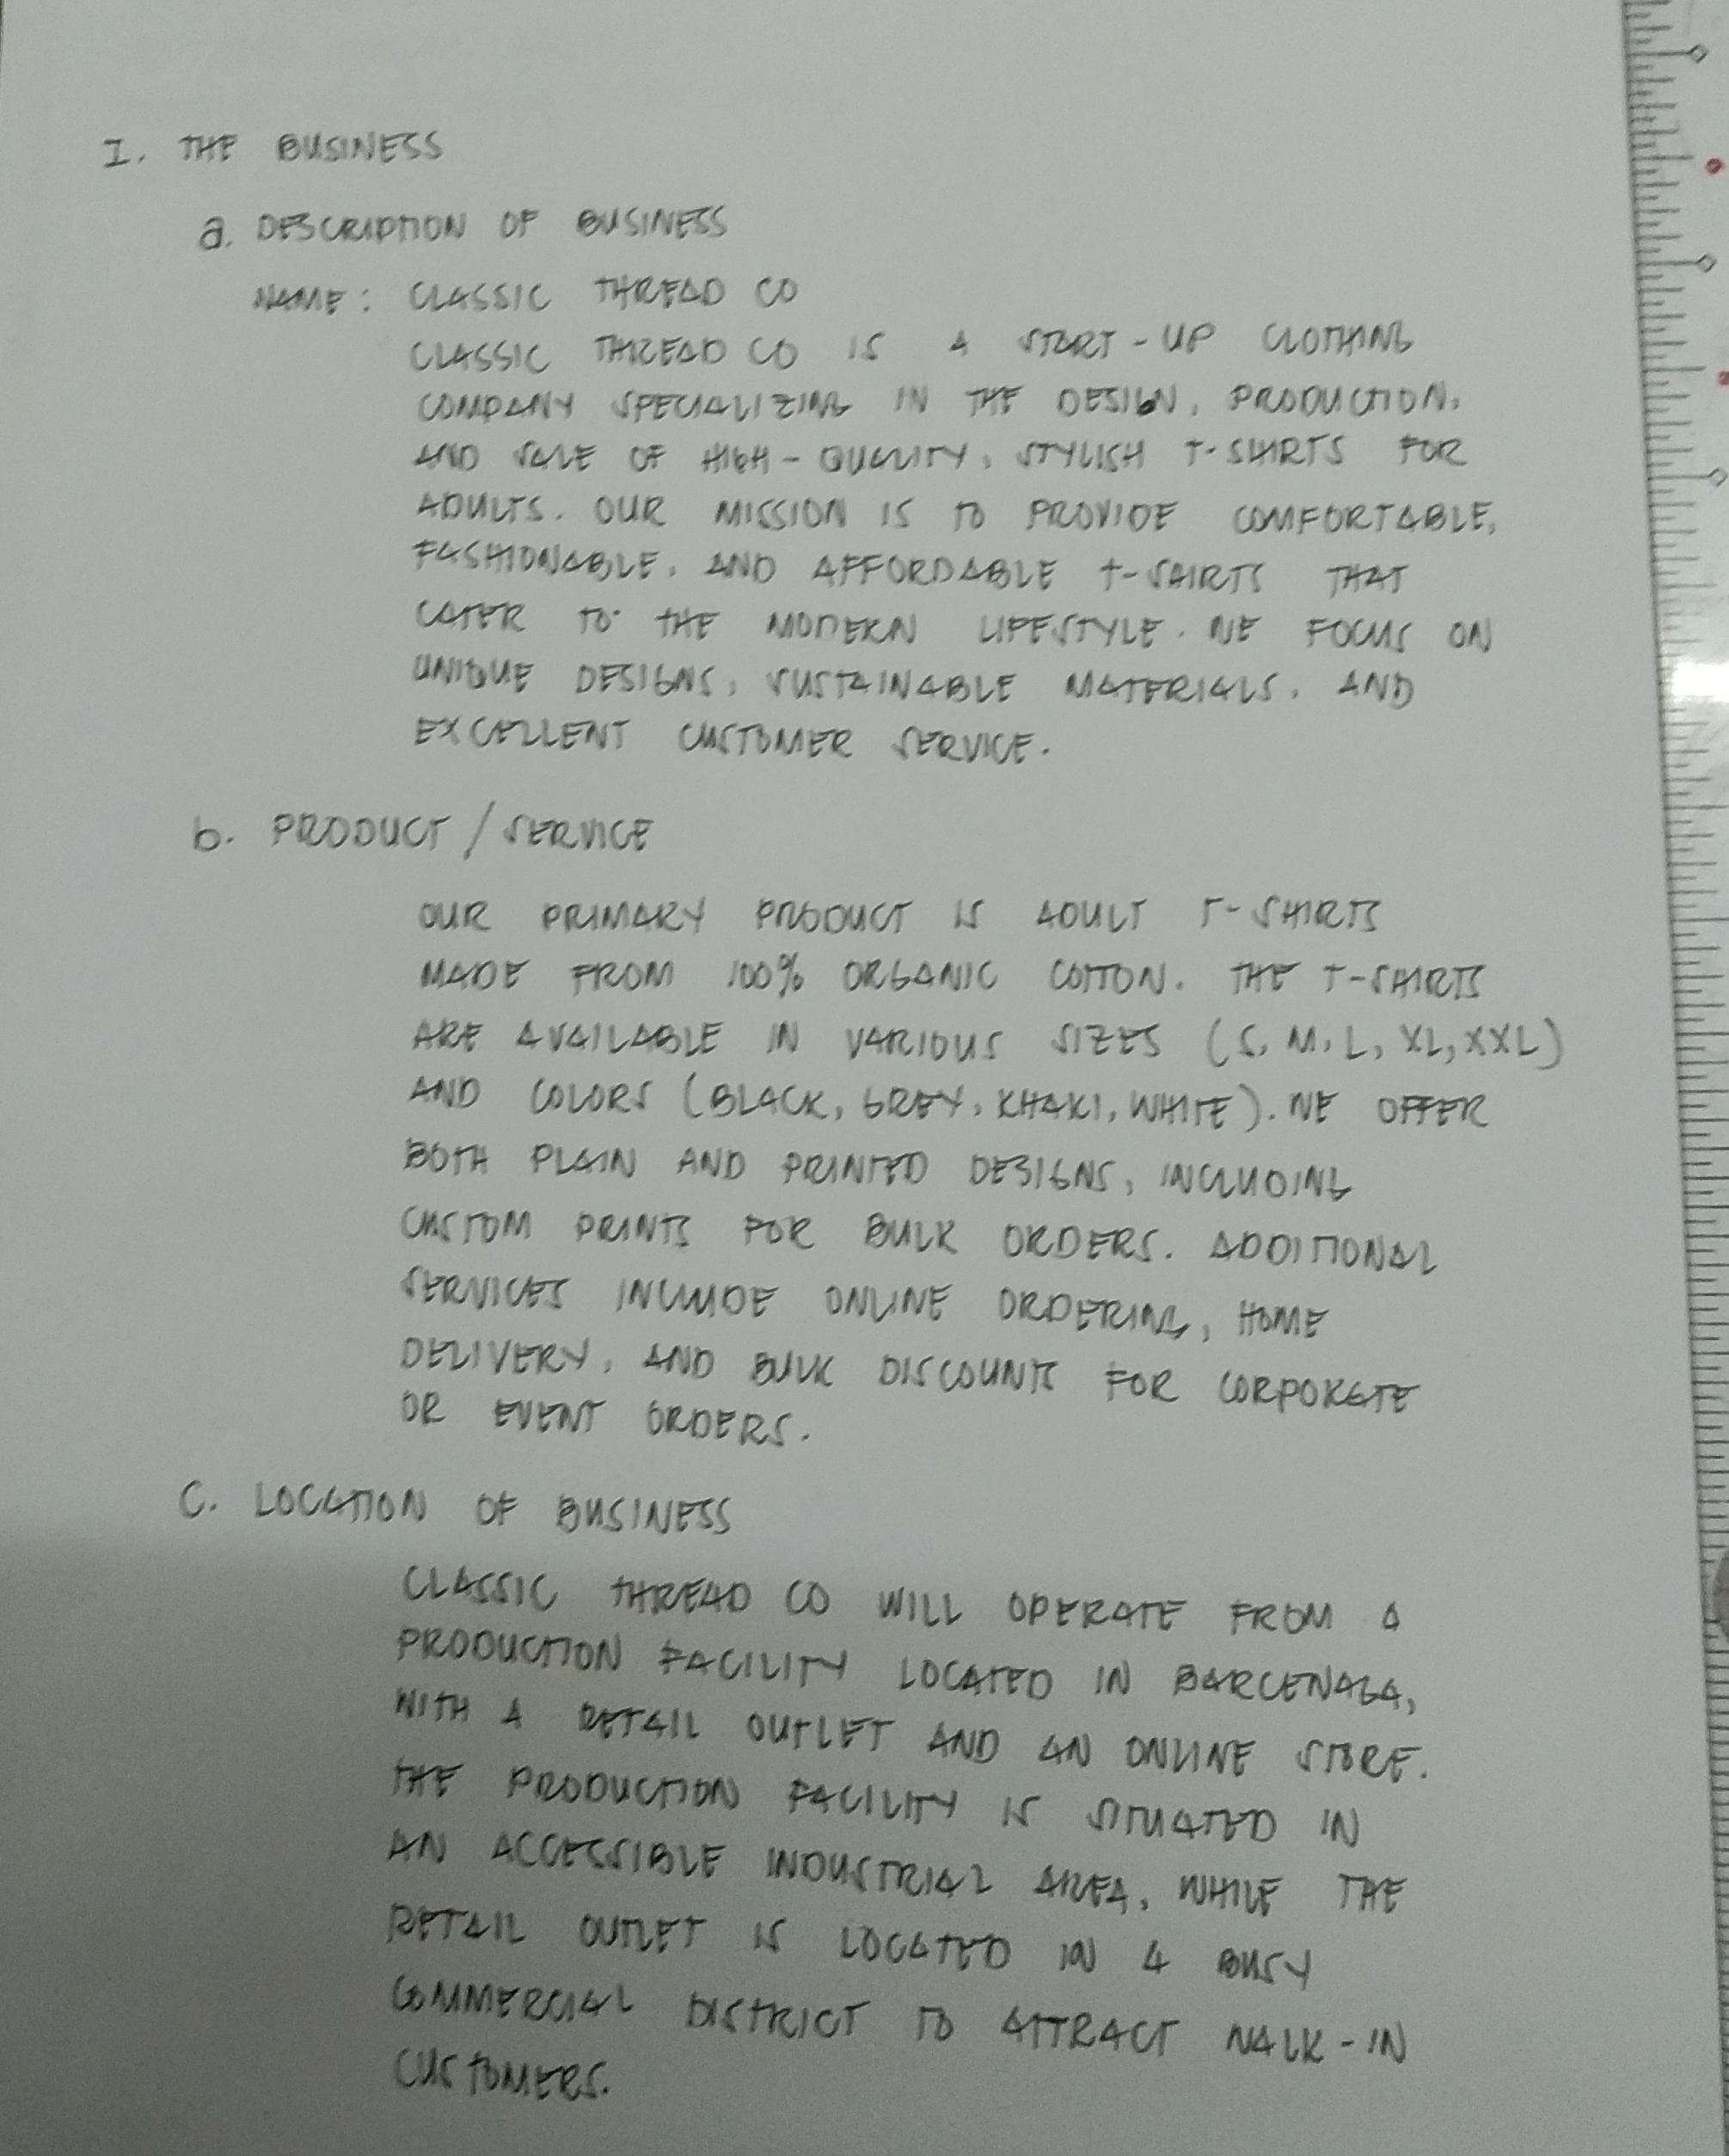 I. THE BUSINESS
a. DESCRIPTION OF BUSINESS
NAME: CLASSIC THREAD CO
CLASSIC THREAD CO IS A START-UP CLOTHING
COMPANY SPECIALIZING IN THE DESIGN, PRODUCTION,
AND SALE OF HIGH-QUALITY, STYLISH T-SHIRTS FOR
ADULTS. OUR MISSION IS TO PROVIDE COMFORTABLE,
FASHIONABLE, AND AFFORDABLE T-SHIRTS THAT
CATER TO THE MODERN LIFESTYLE. WE FOCUS ON
UNIQUE DESIGNS, SUSTAINABLE MATERIALS, AND
EXCELLENT CUSTOMER SERVICE.
b. PRODUCT / SERVICE
OUR PRIMARY PRODUCT IS ADULT T-SHIRTS
MADE FROM 100% ORGANIC COTTON. THE T-SHIRTS
ARE AVAILABLE IN VARIOUS SIZES (S, M, L, XL, XXL)
AND COLORS (BLACK, GREY, KHAKI, WHITE). WE OFFER
BOTH PLAIN AND PRINTED DESIGNS, INCLUDING
CUSTOM PRINTS FOR BULK ORDERS. ADDITIONAL
SERVICES INCLUDE ONLINE ORDERING, HOME
DELIVERY, AND BULK DISCOUNTS FOR CORPORATE
OR EVENT ORDERS.
C. LOCATION OF BUSINESS
CLASSIC THREAD CO WILL OPERATE FROM A
PRODUCTION FACILITY LOCATED IN BARCENAGA,
WITH A RETAIL OUTLET AND AN ONLINE STORE.
THE PRODUCTION FACILITY IS SITUATED IN
AN ACCESSIBLE INDUSTRIAL AREA, WHILE THE
RETAIL OUTLET IS LOCATED IN A BUSY
COMMERCIAL DISTRICT TO ATTRACT WALK-IN
CUSTOMERS.